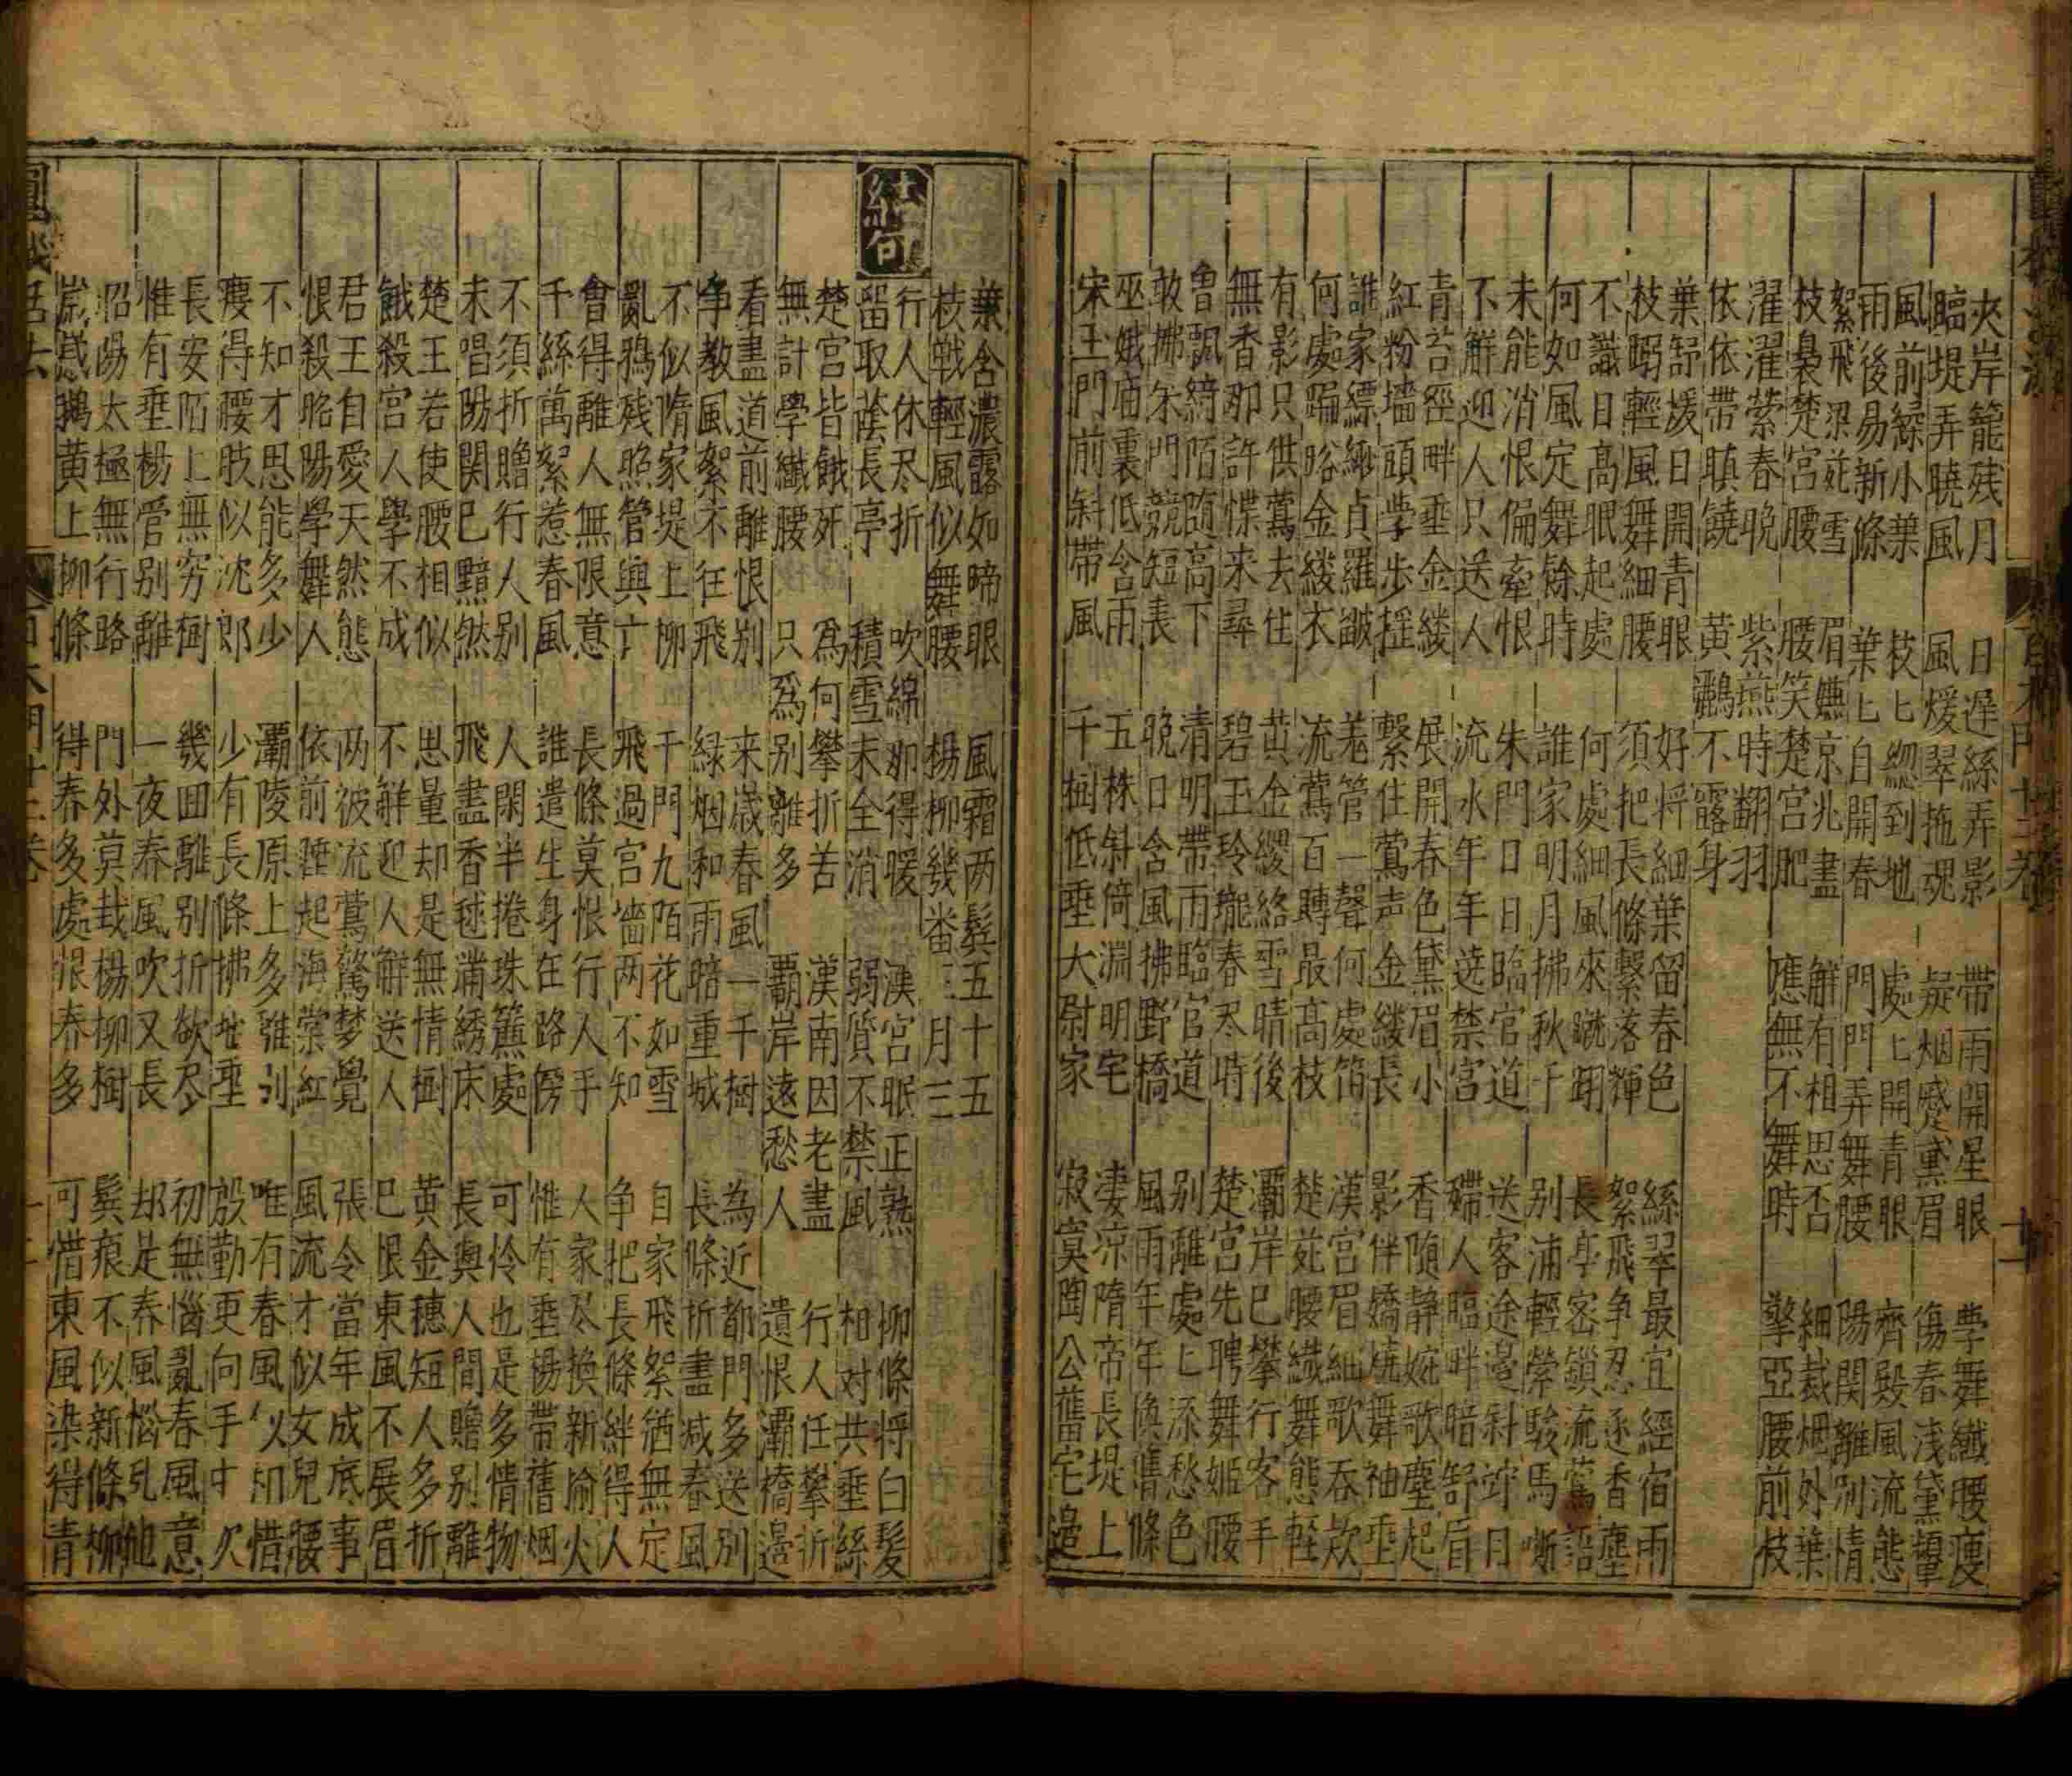 夾岸籠残月 日遅絲弄影 帶雨開星眼 學舞纖腰痩
臨堤弄曉風 風煖翠拖魂 疑烟蹙黛眉 傷春浅黛顰
風前綠小葉 枝匕緫到地 處匕開青眼 齊殿風流態
雨後易新條 葉匕自開春 門門弄舞腰 陽関離別情
絮飛梁苑雪 眉嫵京兆畫 解有相思否 細裁烟外葉
枝裊楚宮腰 腰笑楚宮肥 應無不舞時 擎亞腰前枝
濯濯縈春晚 紫燕時翻羽
依依帶暝饒 黄鸝不露身
葉舒煖日開青眼 好将細葉留春色 絲翠最宜經宿雨
枝踠輕風舞細腰 須把長條繫落輝 絮飛争忍逐香塵
不識日髙眠起處 何處細風來 長亭密鎖流鶯語
何如風定舞餘時 誰家明月拂秋千 別浦輕縈駿馬嘶
未能消恨偏牽恨 朱門日日臨官道 送客途邉斜竚日
不解迎人只送人 流水年年遶禁宮 殢人臨畔暗舒眉
青苔徑畔垂金縷 展開春色黛眉小 香随静婉歌塵起
紅粉墻頭學步揺 繫住鶯声金縷長 影伴嬌嬈舞袖垂
誰家縹緲貞羅皺 羗管一聲何處笛 漢宮眉細歌吞欸
何處 金縷衣 流鶯百轉最髙枝 楚苑腰纖舞態軽
有影只供鶯去住 黄金纓絡雪晴後 灞岸已攀行客手
無香那許蝶来尋 碧玉玲瓏春尽時 楚宮先聘舞姬腰
曾飄綺陌随高下 清明帶雨臨官道 別離處匕添愁色
敢拂朱門競短長 晚日含風拂野橋 風雨年年換舊條
巫娥庙裏低含雨 五株斜倚淵明宅 凄凉隋帝長堤上
宋玉門前斜帶風 千樹低垂大尉家 寂寞陶公舊宅邉
葉含濃露如啼眼 風霜两鬂五十五
枝戦輕風似舞腰 楊柳幾番三月三
結句
行人休尽折 吹綿那得暖 漢宮眠正熟 柳條将白髪
留取蔭長亭 積雪未全消 弱質不禁風 相対共垂絲
楚宮皆餓死 爲何攀折苦 漢南因老盡 行人任攀折
無計學纖腰 只爲別離多 覇岸遠愁人 遺恨灞橋邉
看盡道前離恨別 来歳春風一千樹 為近都門多送別
争教風絮不往飛 緑烟和雨暗重城 長條折盡减春風
不似隋家堤上柳 千門九陌花如雪 自家飛絮猶無定
亂鴉残照管興亡 飛過宮墻两不知 争把長條絆得人
會得離人無限意 長條莫恨行人手 人家尽換新榆火
千絲萬絮惹春風 誰遣生身在路傍 惟有垂楊帶舊烟
不須折贈行人別 人閑半捲珠簾處 可怜也是多情物
未唱陽関已黯然 飛盡香毬滿綉床 長與人間贈別離
楚王若使腰相似 思量却是無情樹 黄金穗短人多折
餓殺宮人學不成 不解迎人解送人 已恨東風不展眉
君王自愛天然態 两被流鶯驚梦覺 張令當年成底事
恨殺昭陽學舞人 依前睡起海棠紅 風流才似女兒腰
不知才思能多少 灞陵原上多離別 唯有春風 惜
瘦得腰肢似沈郎 少有長條拂地垂 慇勤更向手中
長安陌上無穷樹 幾囬離別折欲尽 初無惱亂春風意
惟有垂楊管别離 一夜春風吹又長 却是春風惱
昭陽太極無行路 門外莫栽楊柳樹 鬂痕不似新條柳
嵗嵗鵝黄上柳條 得春多處恨春多 可惜東風染得青